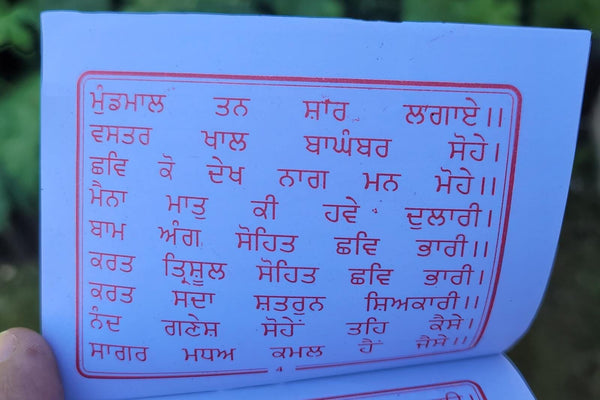 ਮੁੰਡਮਾਲ ਤਨ ਸ਼ਾਰ ਲਗਾਏ।।
ਵਸਤਰ ਖਾਲ ਬਾਘੰਬਰ ਸੋਹੇ।
ਛਵਿ ਕੋ ਦੇਖ ਨਾਗ ਮਨ ਮੋਹੇ।।
ਮੈਨਾ ਮਾਤੁ ਕੀ ਹਵੇ ਦੁਲਾਰੀ।
ਬਾਮ ਅੰਗ ਸੋਹਿਤ ਛਵਿ ਭਾਰੀ।।
ਕਰਤ ਤ੍ਰਿਸ਼ੂਲ ਸੋਹਿਤ ਛਵਿ ਭਾਰੀ।
ਕਰਤ ਸਦਾ ਸ਼ਤਰੁਨ ਸ਼ਿਅਕਾਰੀ।।
ਨੰਦ ਗਣੇਸ਼ ਸੋਹੇਂ ਤਹਿ ਕੈਸੇ।
ਸਾਗਰ ਮਧਅ ਕਮਲ ਹੈਂ ਜੈਸੇ।।
4